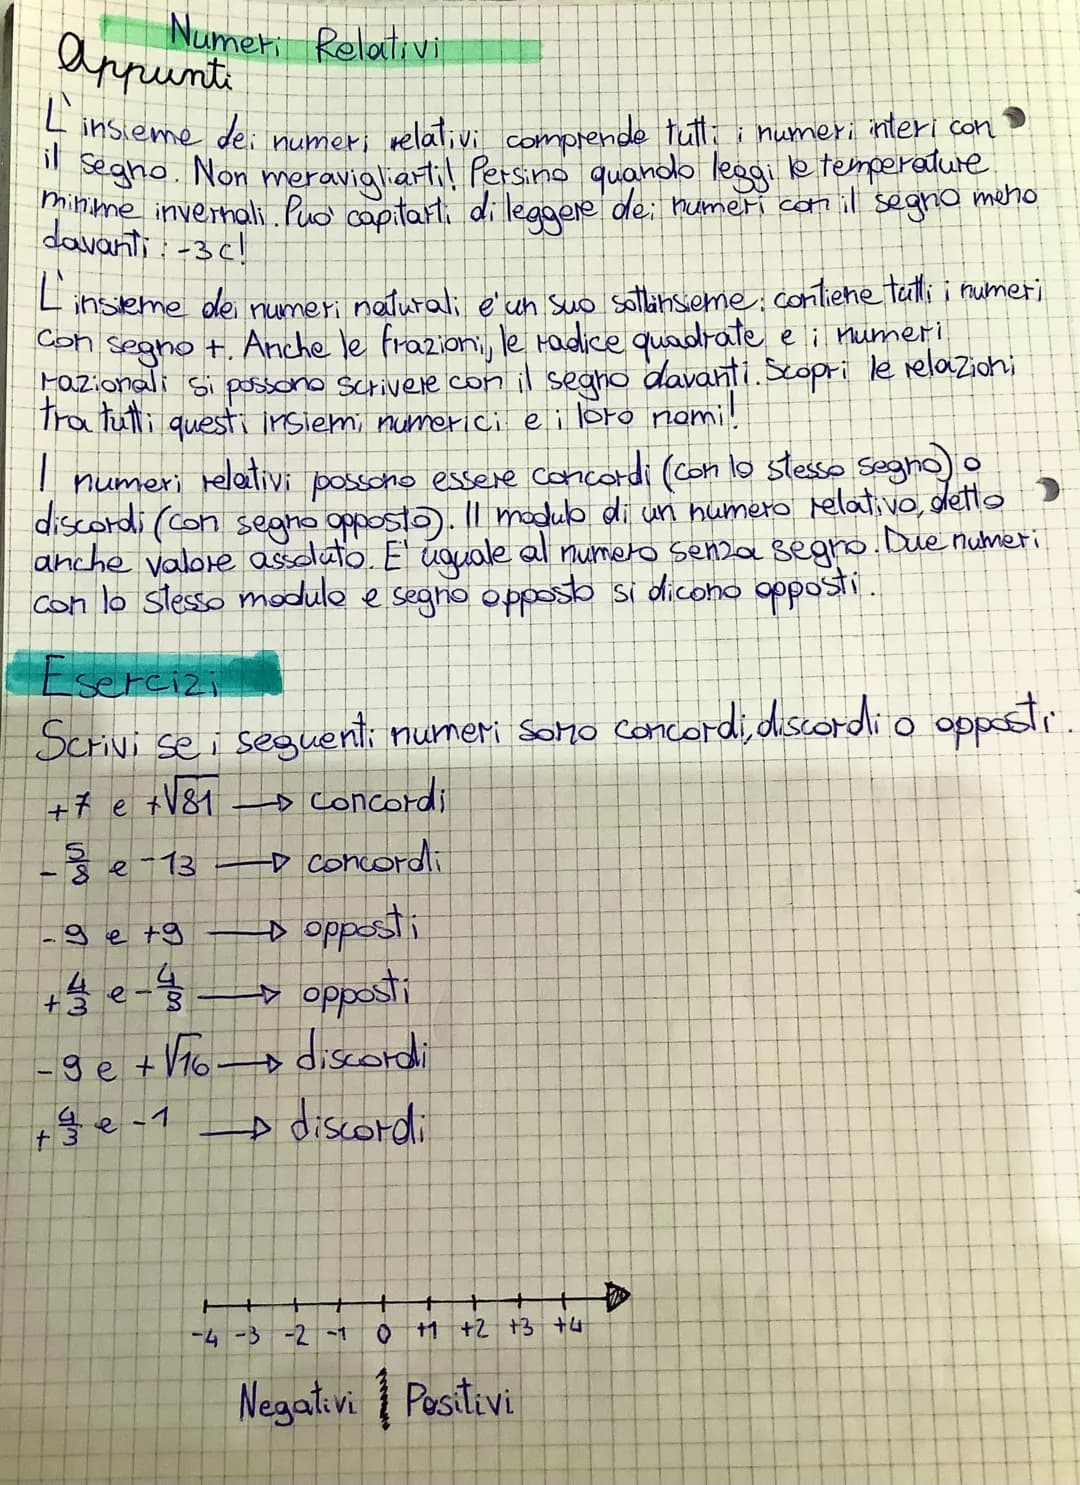 Numeri Relativi
appunti
L'insieme dei numeri relativi comprende tutti i numeri interi con
il segno. Non meravigliarti! Persino quando leggi le temperature
minime invernali. Puo' capitarti di leggere dei numeri con il segno meno
davanti: -3c!
L'insieme dei numeri naturali e' un suo sottinsieme: contiene tutti i numeri
con segno +. Anche le frazioni, le radice quadrate e i numeri
razionali si possono scrivere con il segno davanti. Scopri le relazioni
tra tutti questi insiemi numerici e i loro nomi!
I numeri relativi possono essere concordi (con lo stesso segno) o
discordi (con segno opposto). Il modulo di un numero relativo, detto
anche valore assoluto. E' uguale al numero senza segno. Due numeri
con lo stesso modulo e segno opposto si dicono opposti.
Esercizi
Scrivi se i seguenti numeri sono concordi, discordi o opposti.
+7 e +√81 → concordi
-5/8 e -13 → concordi
-9 e +9 → opposti
+4/3 e -4/3 → opposti
-9 e +√16 → discordi
+4/3 e -1 → discordi
-4 -3 -2 -1 0 +1 +2 +3 +4
Negativi Positivi